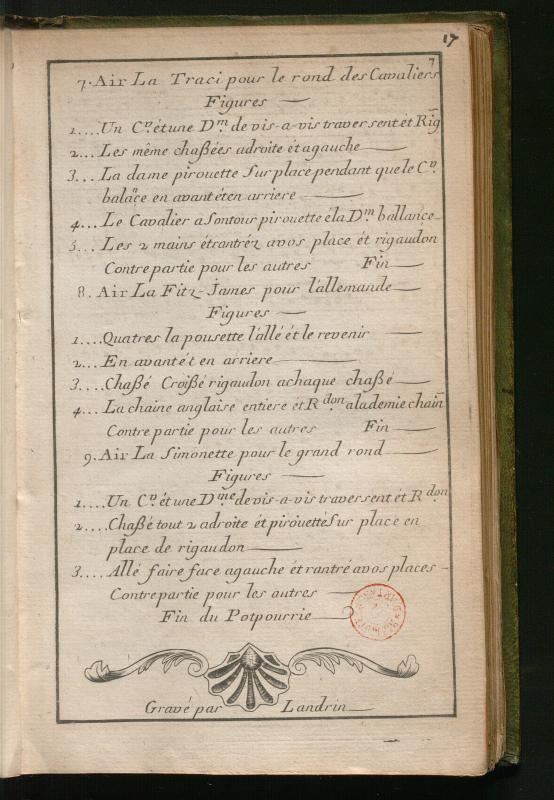 17
7
7. Air La Traci pour le rond des Cavaliers
Figures
1.... Un C.ᵛ ét une D.ᵐ de vis-a-vis traversent ét Rig
2... Les même chaßées adroite ét agauche
3... La dame pirouette Sur place pendant que le C.ᵛ
balan̄ce en avant ét en arriere
4... Le Cavalier a Son tour pirouette é la D.ᵐ ballance
5... Les 2 mains ét rantréz avos place ét rigaudon
Contre partie pour les autres Fin
8. Air La Fitz-James pour l'allemande
Figures
1.... Quatres la pousette l'allé ét le revenir
2... En avant ét en arriere
3.... Chaßé Croißé rigaudon a chaque chaßé
4... La chaine anglaise entiere ét R.ᵈᵒⁿ ala demie chain̄
Contre partie pour les autres Fin
9. Air La Simonette pour le grand rond
Figures
1.... Un C.ᵛ ét une D.ᵐᵉ de vis-a-vis traversent ét R.ᵈᵒⁿ
2.... Chaßé tout 2 adroite ét pirouetté Sur place en
place de rigaudon
3.... Allé faire face agauche ét rantré avos places
Contre partie pour les autres
Fin du Potpourrie
Gravé par Landrin